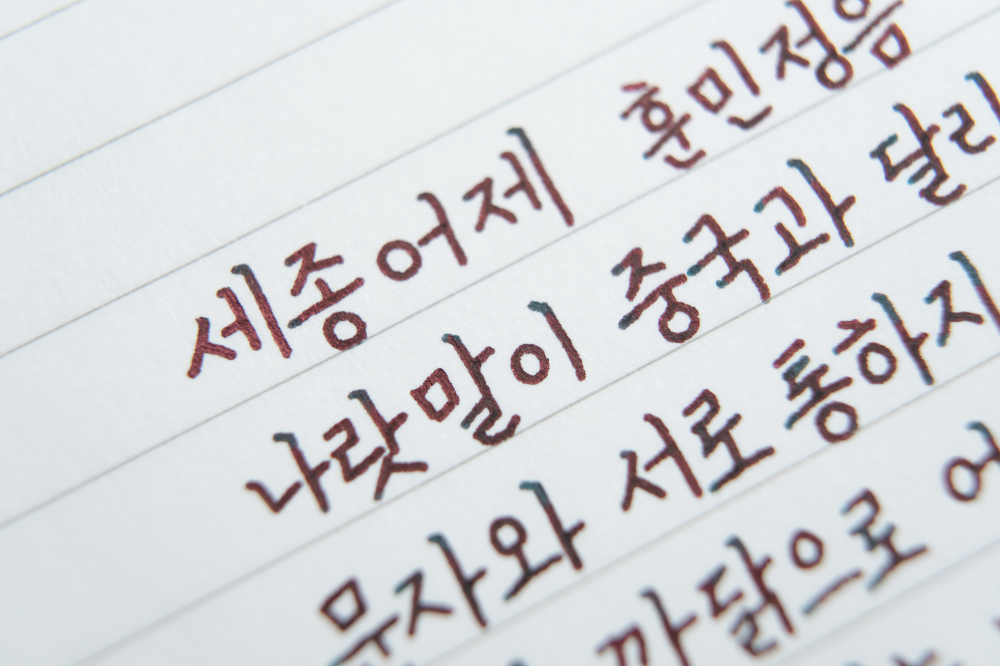 세종어제 훈민정음
나랏말이 중국과 달라
문자와 서로 통하지
까닭으로 어